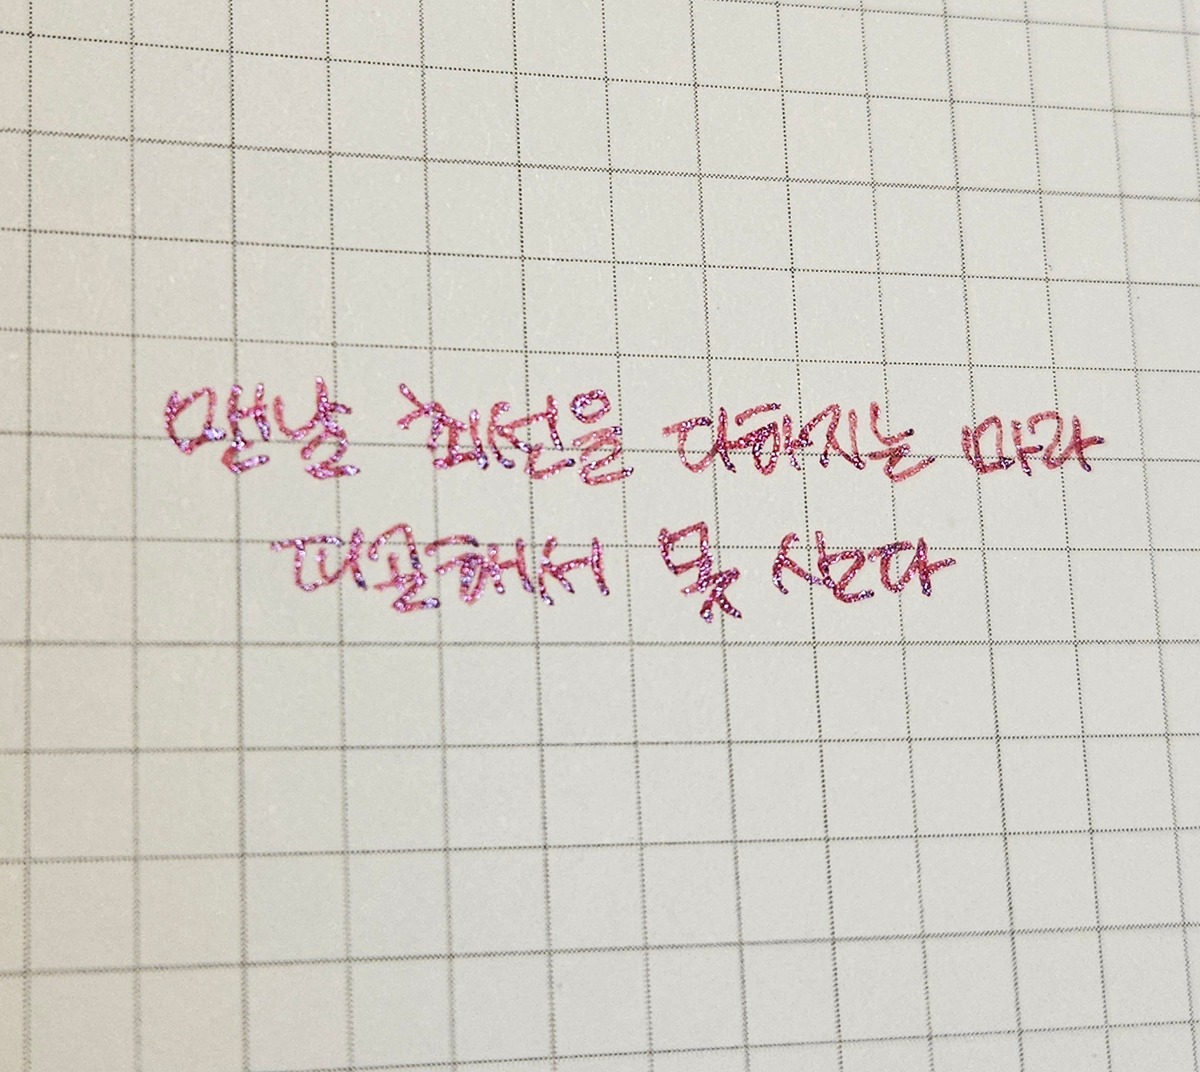 맨날 최선을 다하지는 마라
피곤해서 못 산다